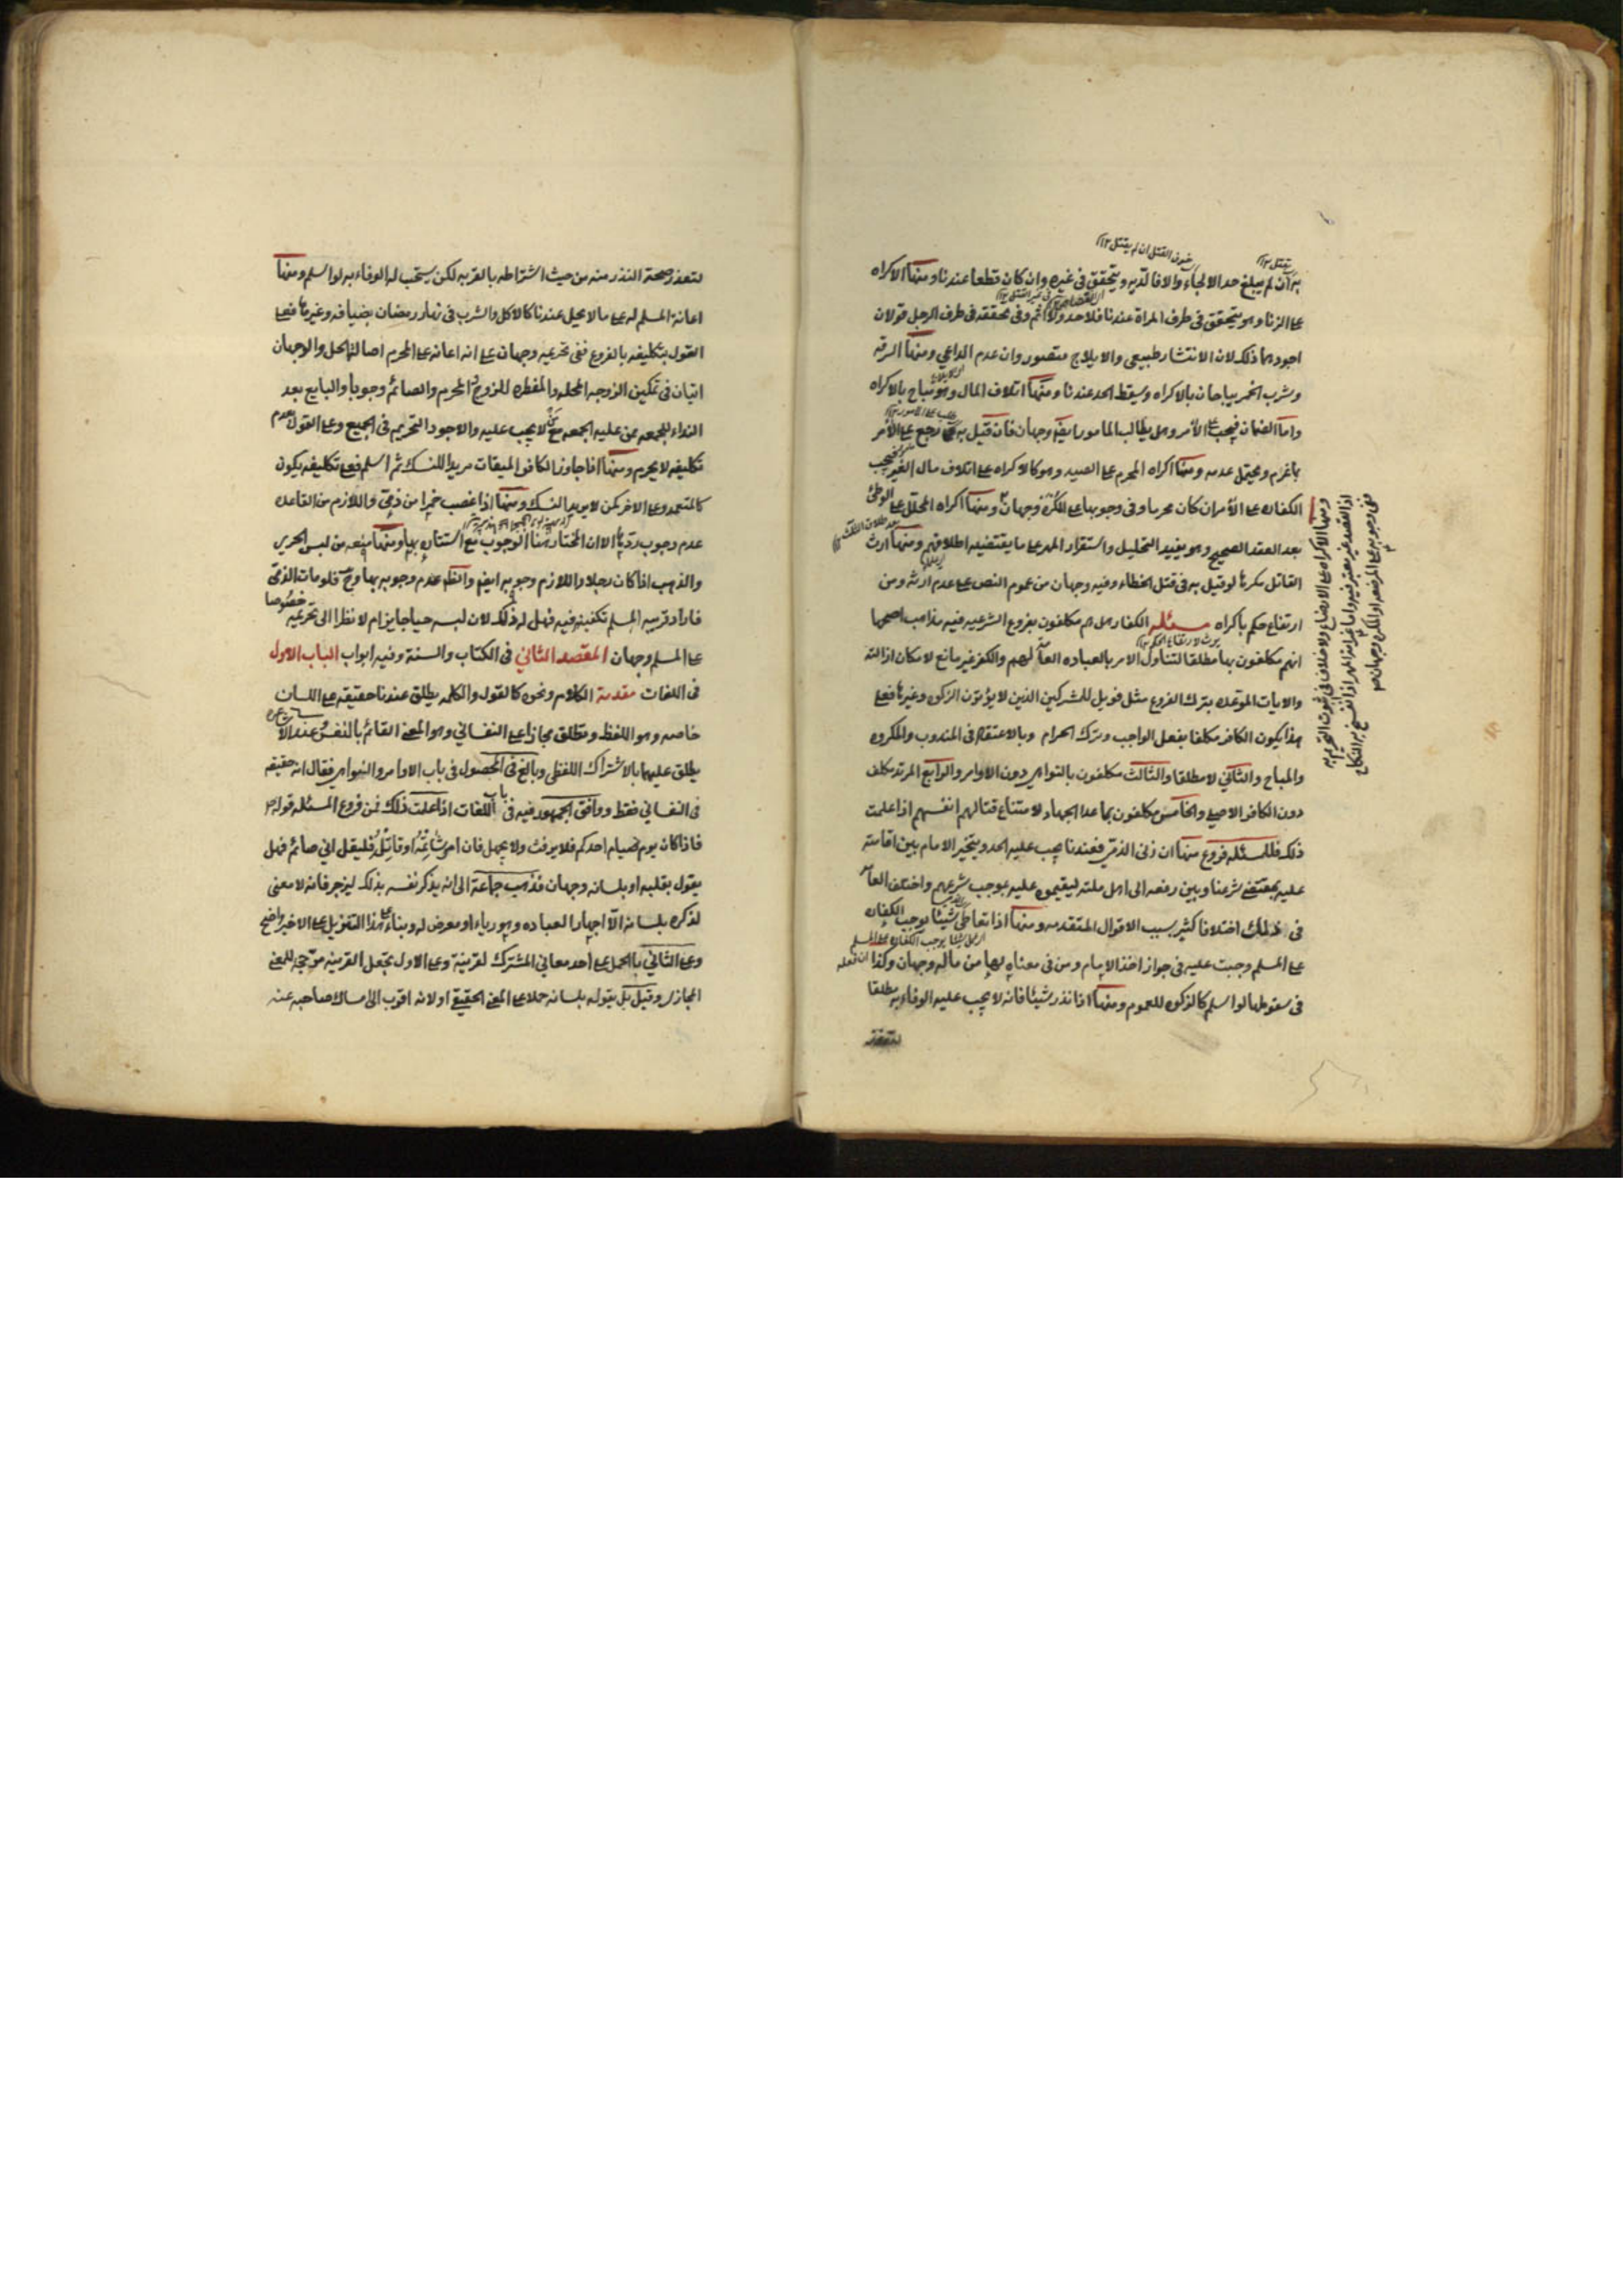 به ان لم يبلغ حد الالجاء والا فالديه ويتحقق فى غيره وان كان قطعا عندنا ومنها الاكراه
على الزنا وهو يتحقق فى طرف المراة عندنا فلا حد ولا اثم وفى تحققه فى طرف الرجل قولان
اجودهما ذلك لان الانتشار طبيعى والايلاج متصور وان عدم الداعي ومنها السرقه
وشرب الخمر يباحان بالاكراه ويسقط الحد عندنا ومنها اتلاف المال وهو يباح بالاكراه
واما الضمان فيجب على الأمر وهل يطالب المامور ايضا وجهان فان قيل به رجع على الأمر
بما غرم ويحتمل عدمه ومنها اكراه المحرم على الصيد وهو كالاكراه على اتلاف مال الغير فيجب
الكفاره على الأمر ان كان محرما وفى وجوبها على المكره وجهان ومنها اكراه المحلل على الوطئ
بعد العقد الصحيح وهو يفيد التحليل واستقرار المهر على ما يقتضيه اطلاقهم ومنها ارث
القاتل مكرها لو قيل به فى قتل الخطاء وفيه وجهان من عموم النص على عدم ارثه ومن
ارتفاع حكم باكراه مسئله الكفار هل هم مكلفون بفروع الشرعيه فيه مذاهب اصحها
انهم مكلفون بها مطلقا لتناول الامر بالعباده العام لهم والكفر غير مانع لامكان ازالته
والايات الموعده بترك الفروع مثل فويل للمشركين الذين لا يؤتون الزكوه وغيرها فعلى
هذا يكون الكافر مكلفا بفعل الواجب وترك الحرام وبالاعتقاد فى المندوب والمكروه
والمباح والثاني لا مطلقا والثالث مكلفون بالنواهى دون الاوامر والرابع المرتد مكلف
دون الكافر الاصلى والخامس مكلفون بما عدا الجهاد لامتناع قتالهم انفسهم اذا علمت
ذلك فللمسئله فروع منها ان زنى الذمى فعندنا يجب عليه الحد ويتخير الامام بين اقامته
عليه بمقتضى شرعنا وبين رفعه الى اهل ملته ليقيموه عليه بموجب شرعهم واختلف العامه
فى ذلك اختلافا كثير بسبب الاقوال المتقدمه ومنها اذا تعاطى شيئا يوجب الكفاره
على المسلم وجبت عليه فى جواز اخذ الامام ومن فى معناه لها من ماله وجهان وكذا
فى سقوطها لو اسلم كالزكوه للعموم ومنها اذا نذر شيئا فانه لا يجب عليه الوفاء به مطلقا
ومنها الاكراه على الارضاع ولا خلاف فى ثبوت التحريم به
اذ القصد غير معتبر فيه واما غرامة المهر اذا انفسخ به النكاح
ففى وجوبه على المرضعه او المكره وجهان
لتعذر صحة النذر منه من حيث اشتراطه بالقربه لكن يستحب له الوفاء به لو اسلم ومنها
اعانة المسلم له على ما لا يحل عندنا كالاكل والشرب فى نهار رمضان بضيافه وغيرها فعلى
القول بتكليفه بالفروع ففى تحريمه وجهان على انه اعانه على المحرم اصالة الحل والوجهان
اتيان فى تمكين الزوجه المحله والمفطره للزوج المحرم والصائم وجوبا والبايع بعد
النداء للجمعه من عليه الجمعه مع من لا يجب عليه والاجود التحريم فى الجميع وعلى القول بعدم
تكليفه لا يحرم ومنها اذا جاوز الكافر الميقات مريدا للنسك ثم اسلم فعلى تكليفه يكون
كالمتعمد وعلى الاخر كمن لا يريد النسك ومنها اذا غصب خمرا من ذمى واللازم من القاعده
عدم وجوب ردها الا ان المختار هنا الوجوب مع استتاره بها ومنها منعه من لبس الحرير
والذهب اذا كان رجلا واللازم وجوبه ايضا والنظم عدم وجوبه بها فلو مات الذمى
فاراد قريبه المسلم تكفينه فيه فهل له ذلك لان لبسه حيا جايز ام لا نظرا الى تحريمه خصوصا
على المسلم وجهان المقصد الثاني فى الكتاب والسنة وفيه ابواب الباب الاول
فى اللغات مقدمة الكلام ونحوه كالقول والكلمه يطلق عندنا حقيقه على اللسان
خاصه وهو اللفظ ويطلق مجازا على النفسانى وهو المعنى القائم بالنفس وعند الاشاعره
يطلق عليهما بالاشتراك اللفظى وبالغ فى المحصول فى باب الاوامر والنواهى فقال انه حقيقه
فى النفسانى فقط ووافق الجمهور فيه فى باب اللغات اذا علمت ذلك فمن فروع المسئله قوله
فاذا كان يوم صيام احدكم فلا يرفث ولا يجهل فان امرء شاتمه او قاتله فليقل انى صائم فهل
يقول بقلبه او بلسانه وجهان فذهب جماعة الى انه يذكر نفسه بذلك لينزجر فانه لا معنى
لذكره بلسانه الا اجهار العباده وهو رياء او معرض له وبناء على هذا التنزيل على الاخير واضح
وعلى الثاني بالحمل على احد معاني المشترك لقرينة وعلى الاول تجعل القرينه موجبه للمعنى
المجازى وقيل بل يقوله بلسانه حملا على المعنى الحقيقى او لانه اقرب الى امساك صاحبه عنه